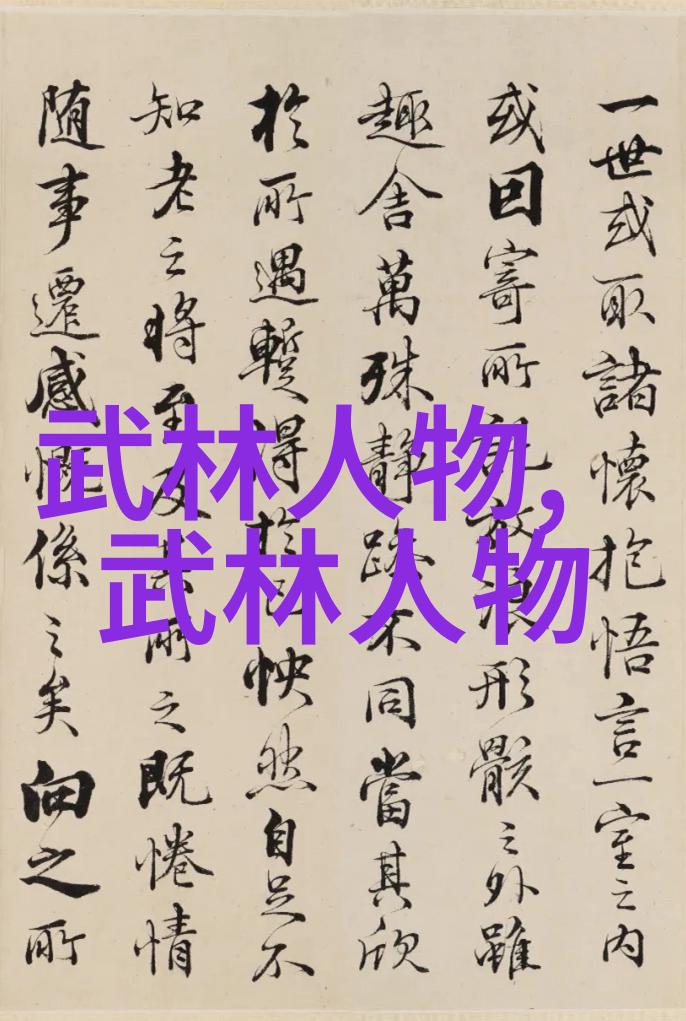 一世或取諸懷抱悟言一室之内
或因寄所託放浪形骸之外雖
趣舍萬殊静躁不同當其欣
於所遇蹔得於己怏然自足不
知老之將至及其所之既惓情
随事遷感慨係之矣向之所
武林人物,
武林人物